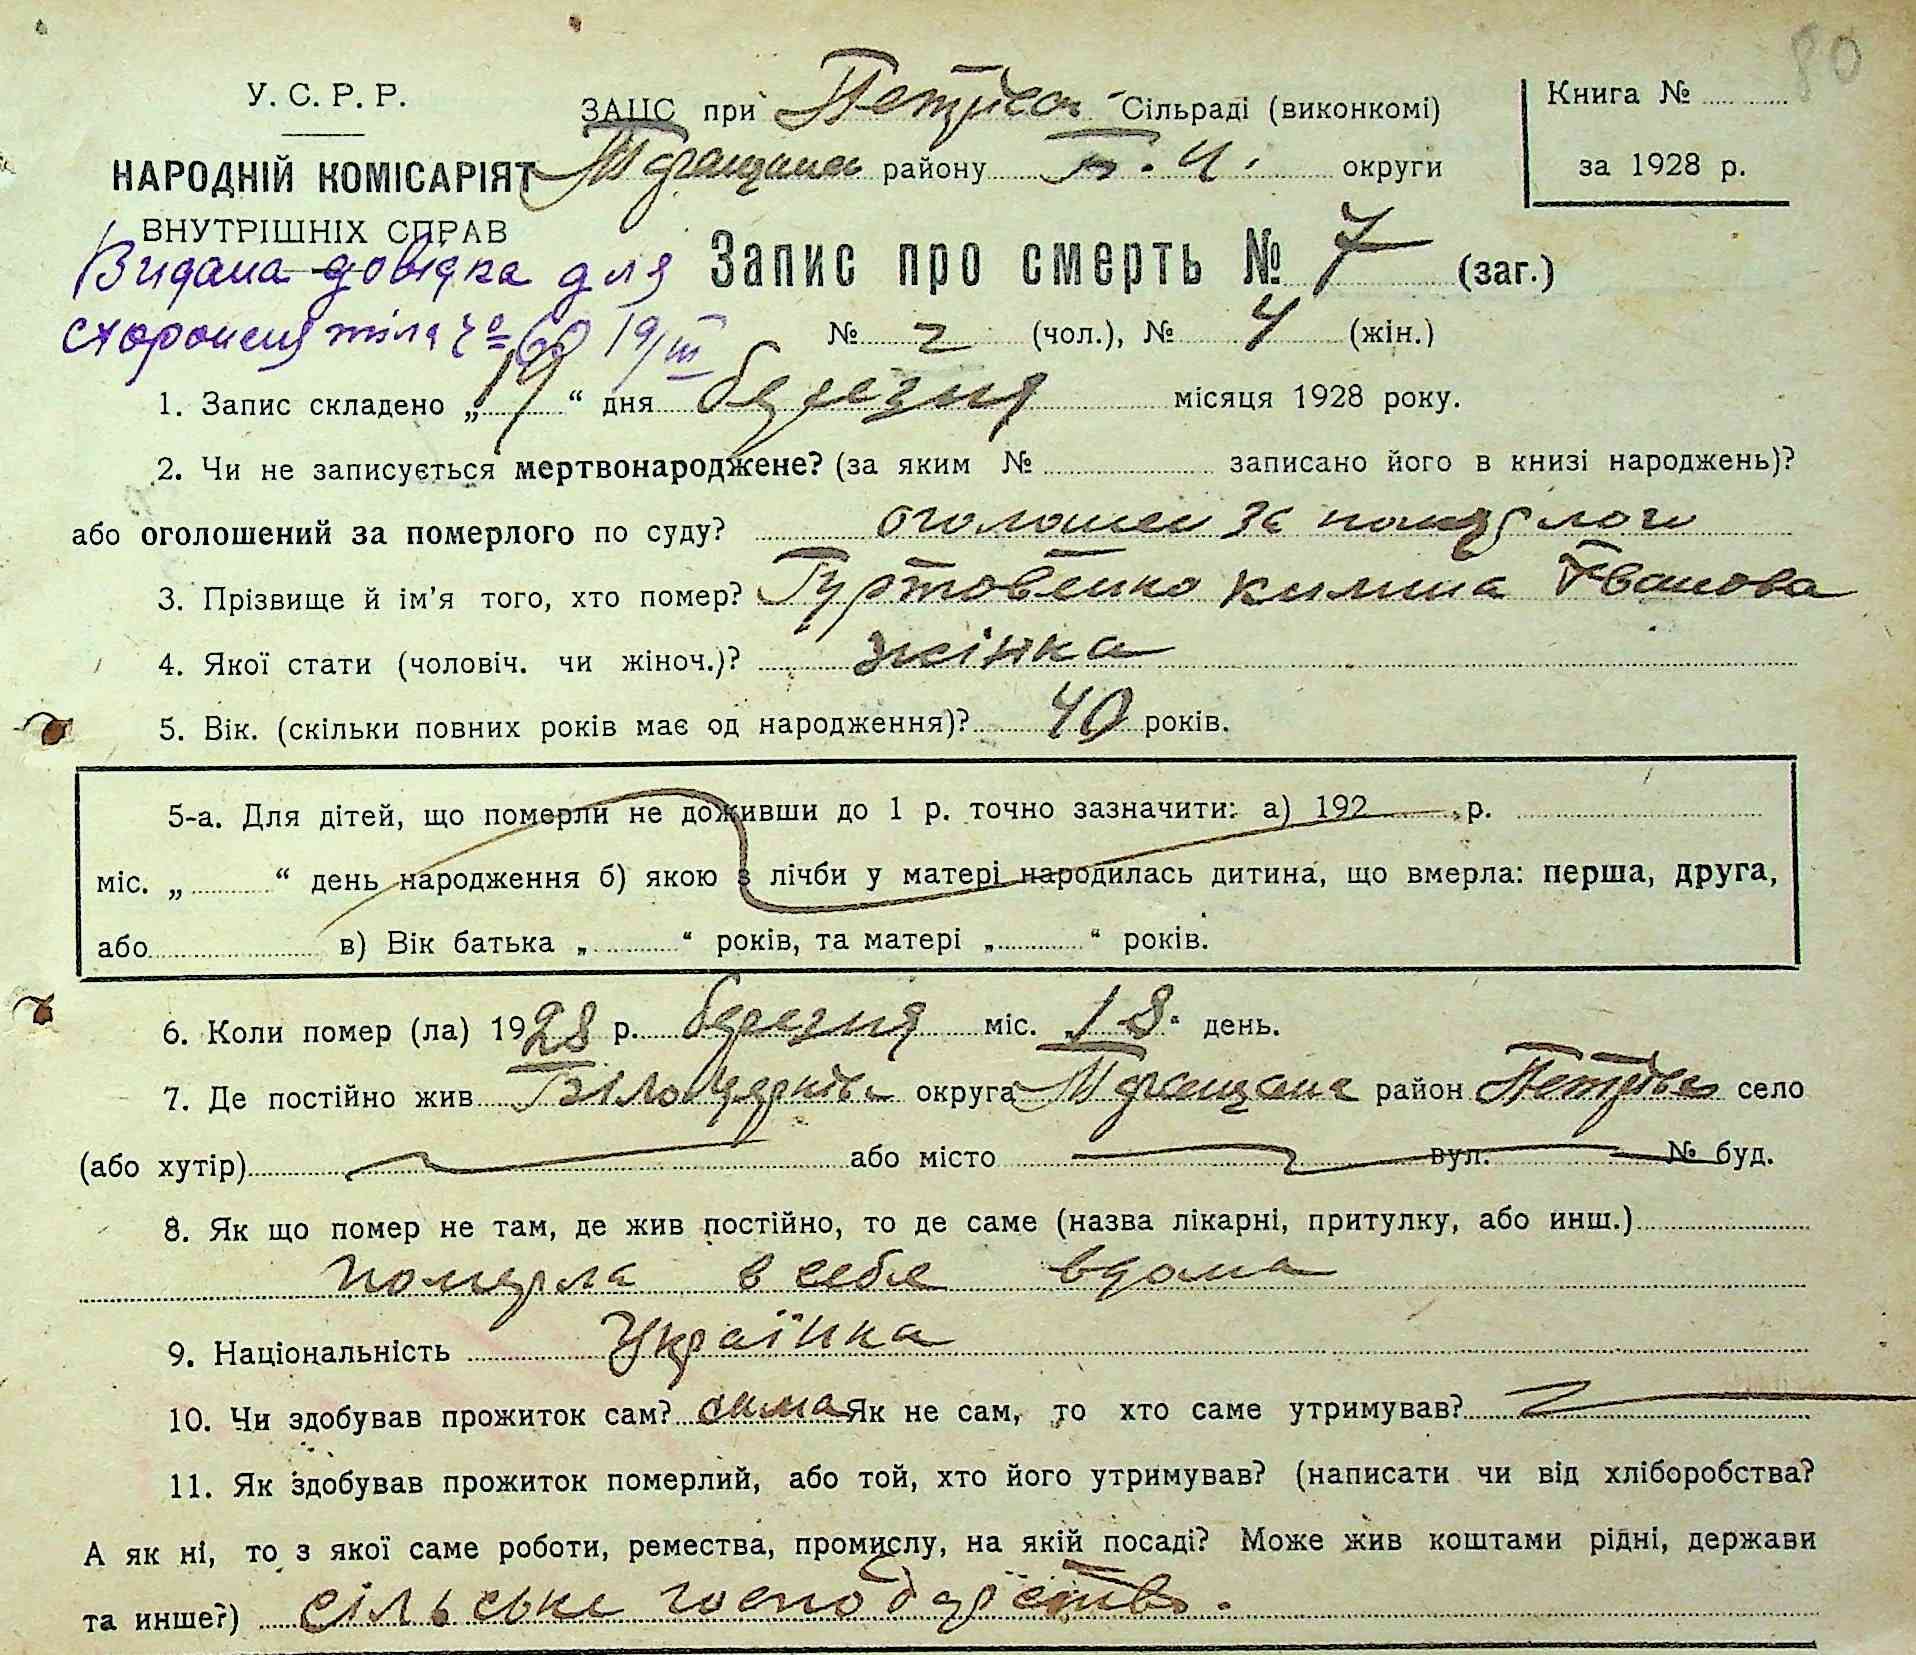 80
У. С. Р. Р.
ЗАЦС при Петрівсь- Сільраді (виконкомі)
Книга №
НАРОДНІЙ КОМІСАРІЯТ
Таращансь району Б. Ц. округи
за 1928 р.
ВНУТРІШНІХ СПРАВ
Видана довідка для
Запис про смерть № 7 (заг.)
схоронення тіла 60 19/III
№ 2 (чол.), № 4 (жін.)
1. Запис складено „ 19 “ дня березня місяця 1928 року.
2. Чи не записується мертвонароджене? (за яким № записано його в книзі народжень)?
або оголошений за померлого по суду? оголошен за померлого
3. Прізвище й ім'я того, хто помер? Гуртовенко Килина Іванова
4. Якої стати (чоловіч. чи жіноч.)? жінка
5. Вік. (скільки повних років має од народження)? 40 років.
5-а. Для дітей, що померли не доживши до 1 р. точно зазначити: а) 192 р.
міс. „ “ день народження б) якою з лічби у матері народилась дитина, що вмерла: перша, друга,
або в) Вік батька „ “ років, та матері „ “ років.
6. Коли помер (ла) 1928 р. березня міс. „ 18 “ день.
7. Де постійно жив Білоцерківс округа Таращанс район Петрівс село
(або хутір) або місто вул. № буд.
8. Як що помер не там, де жив постійно, то де саме (назва лікарні, притулку, або инш.)
померла в себе вдома
9. Національність Українка
10. Чи здобував прожиток сам? сама Як не сам, то хто саме утримував?
11. Як здобував прожиток померлий, або той, хто його утримував? (написати чи від хліборобства?
А як ні, то з якої саме роботи, ремества, промислу, на якій посаді? Може жив коштами рідні, держави
та инше?) сільське господарство.